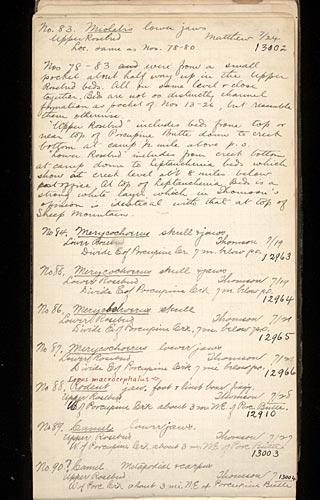 No. 83. Miolabis lower jaws
Upper Rosebud Matthew 7/24
Loc. same as Nos. 78-80 13002
Nos 78-83 and were from a small
pocket about half way up in the Upper
Rosebud beds. All on same level & close
together. Beds are not so distinctly channel
formation as pocket of Nos 13-26, but resemble
them otherwise.
"Upper Rosebud" includes beds from top or
near top of Porcupine Butte down to creek
bottom at camp ½ mile above p.o.
Lower Rosebud includes from creek bottom
at camp down to Leptauchenia beds which
show at creek level abt 8 miles below
post office. At top of Leptauchenia beds is a
strong white layer which in Thomson's
opinion is identical with that at top of
Sheep Mountain.
No 84. Merycochoerus skull & jaws
Lower Rosebud Thomson 7/19
Divide E of Porcupine Cr. 7 m. below p.o. 12963
No 85. Merycochoerus skull & jaws
Lower Rosebud Thomson 7/19
Divide E of Porcupine Crk. 7 m. below p.o. 12964
No. 86. Merycochoerus skull
Lower Rosebud Thomson 7/21
Divide E of Porcupine Crk. 7 mi below p.o. 12965
No. 87. Merycochoerus lower jaws
Lower Rosebud Thomson 7/21
Divide E of Porcupine Crk. 7 mi below p.o. 12966
Lepus macrocephalus
No. 88. Rodent jaw, foot & limb bone frags.
Upper Rosebud Thomson 7/25
W. of Porcupine Crk about 3 mi. N.E. of Porc. Butte.
12910
No. 89. Camel lower jaws.
Upper Rosebud Thomson 7/27
W. of Porcupine Crk about 3 mi. N.E. of Porc. Butte.
13003
No. 90? Camel Metapodial & carpus
Upper Rosebud Thomson
W. of Porc. Crk. about 3 mi. N.E. of Porcupine Butte